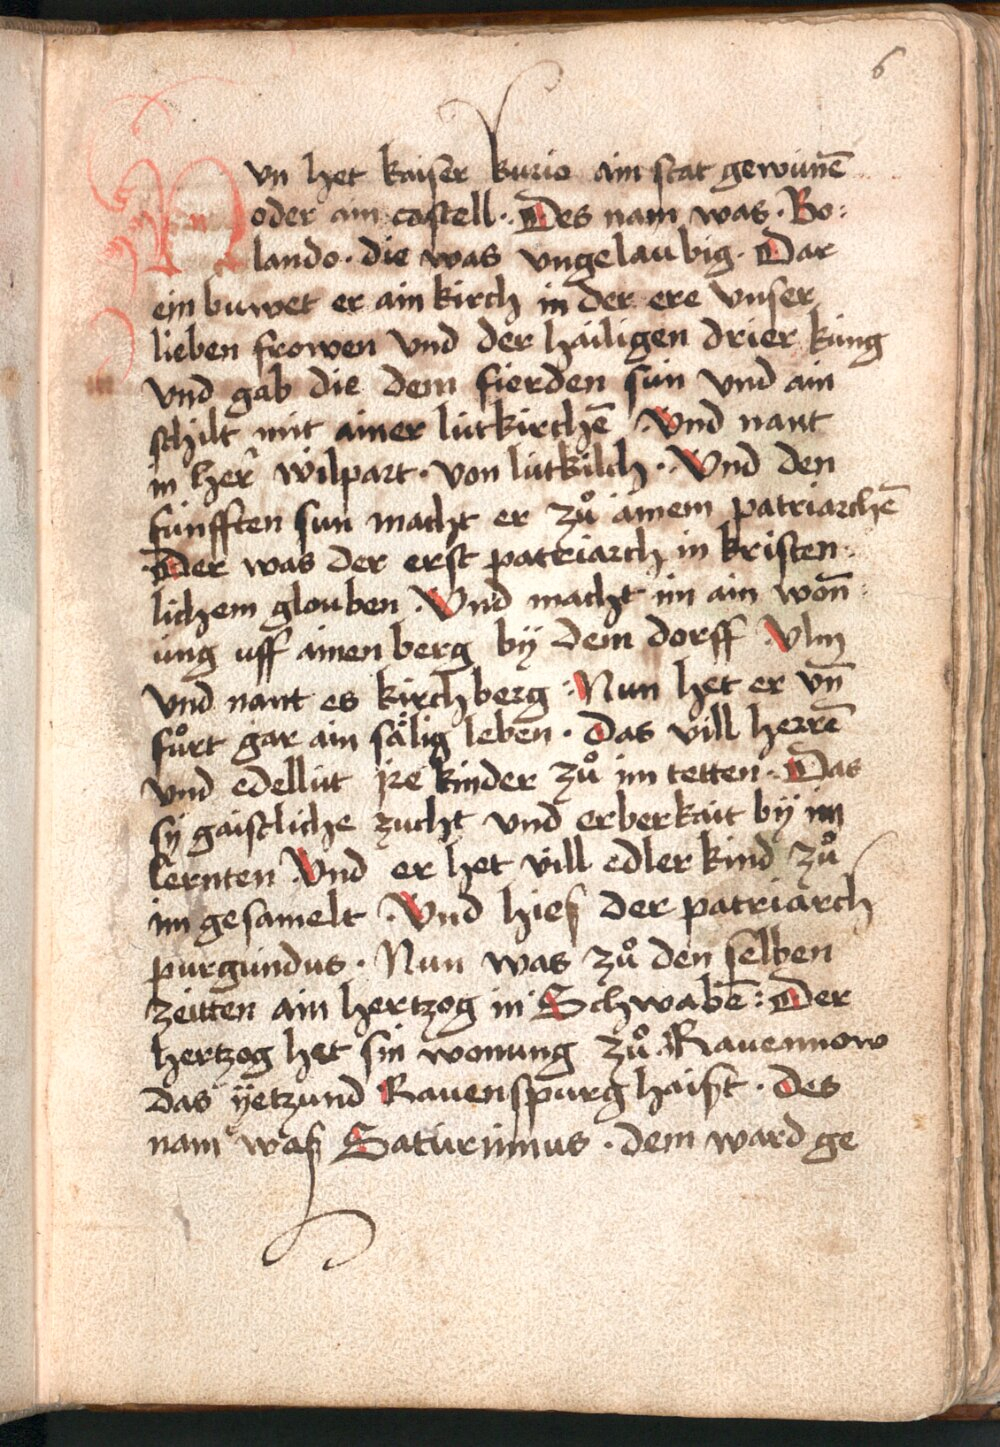 6
Nvn het kaiser kurio ain stat gewunē
oder ain castell · Des nam was · Bo:
lando · die was vngelaubig · Dar
ein buwet er ain kirch in der ere vnser
lieben frowen vnd der hailigen drier kúng
vnd gab die dem fierden sun vnd ain
schilt mit ainer lútkirchē · Vnd nant
in her wilpart · von lútkilch · Vnd den
fúnfften sun macht er zů ainem patriarchē
· Der was der erst patriarch in kristen ·
lichem glouben · Vnd macht im ain won̄ ·
ung uff ainen berg bÿ dem dorff Vlm
vnd nant es kirchberg · Nun het er vn̄
fůrt gar ain sälig leben · Das vill herrē
vnd edellút ire kinder zů im tetten · Das
sÿ gaistliche zucht vnd erberkait bÿ im
lernten · Vnd er het vill edler kind zů
im gesamelt · Vnd hieß der patriarch
purgundus · Nun was zů den selben
zeitten ain hertzog in Schwabē : Der
hertzog het sin wonung zů · Rauennow
das ÿetzund Rauenspurg haißt · des
nam waß Saturninus · dem ward ge